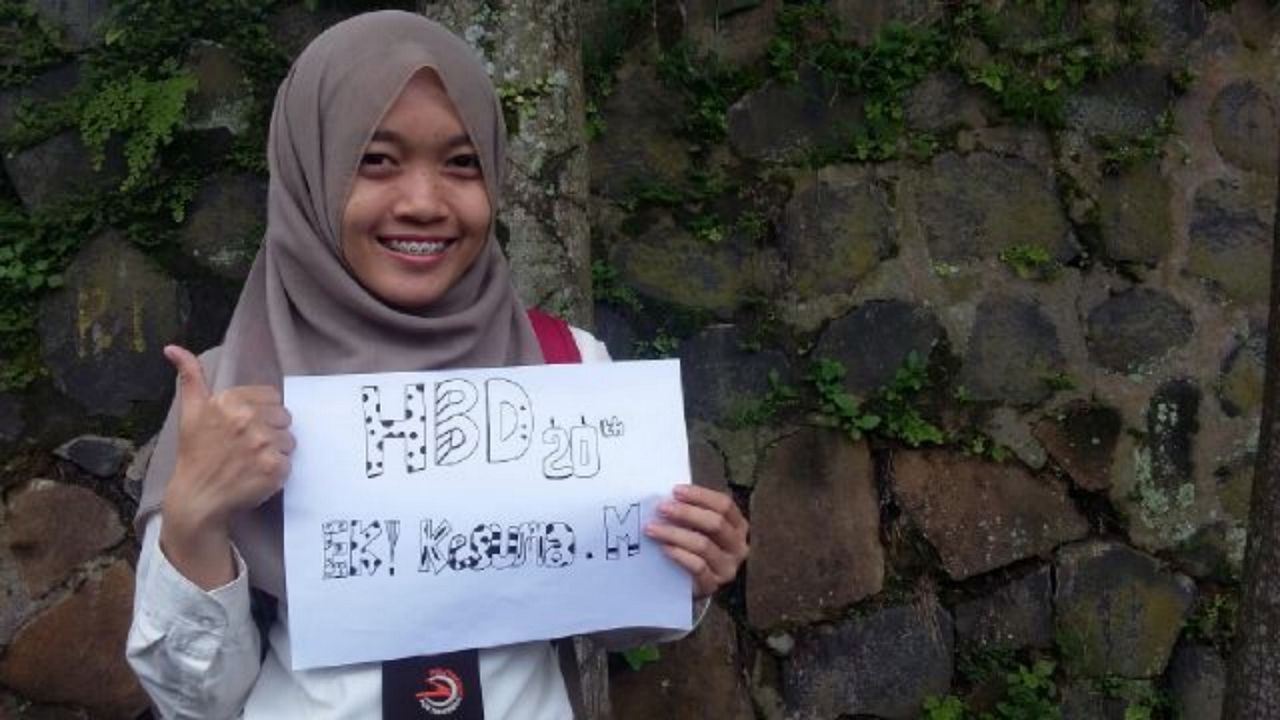 HBD 20th
EKI Kesuma . M